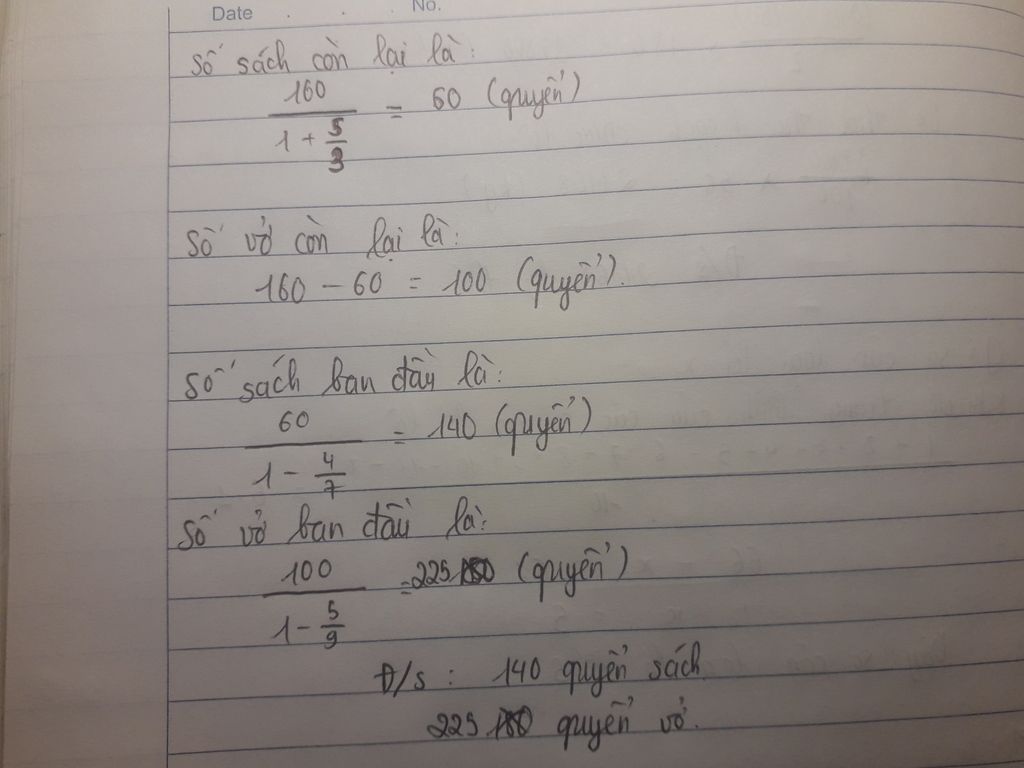 Date . . No.
Số sách còn lại là:
160 / (1 + 5/3) = 60 (quyển)
Số vở còn lại là:
160 - 60 = 100 (quyển).
Số sách ban đầu là:
60 / (1 - 4/7) = 140 (quyển)
Số vở ban đầu là:
100 / (1 - 5/9) = 225 (quyển)
Đ/s : 140 quyển sách
225 quyển vở.